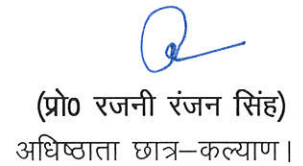 (प्रो0 रजनी रंजन सिंह)
अधिष्ठाता छात्र–कल्याण।